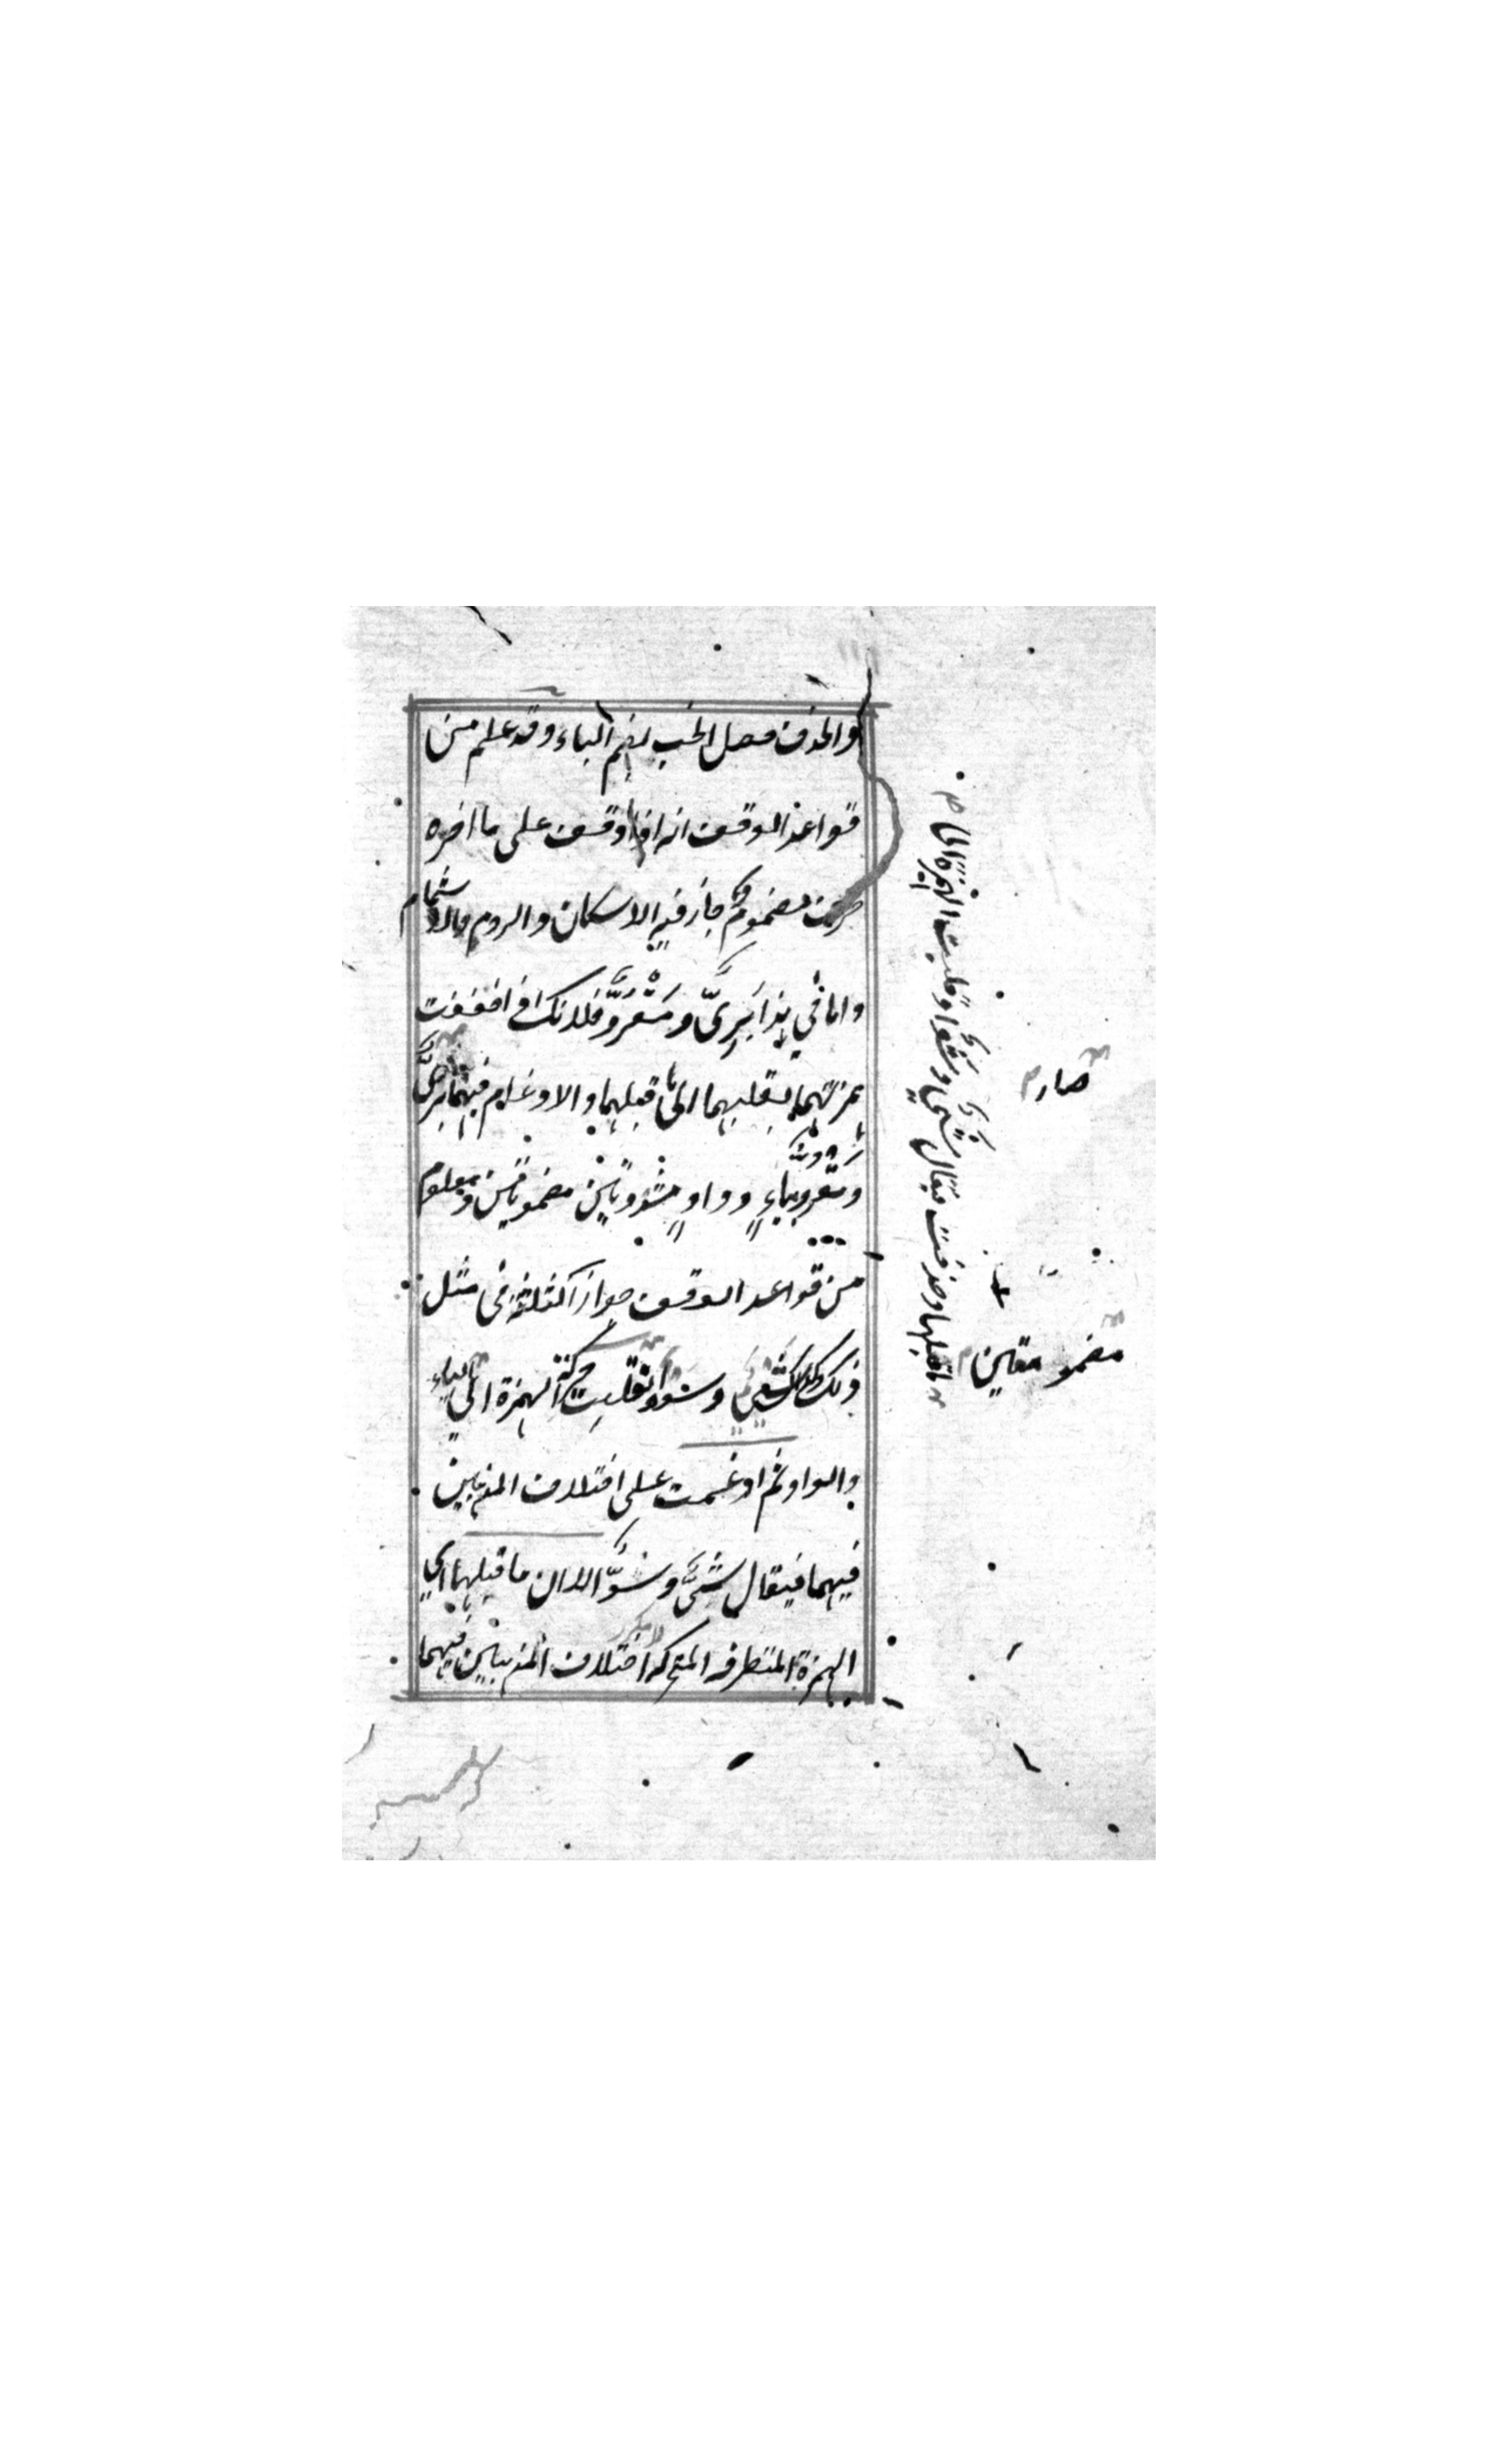 والحذف حصل الخب بضم الباء وقد علم من
قواعد الوقف انه اذا وقف على ما اخره
حرف مضموم جاز فيه الاسكان والروم والاشمام
واما في هذا بَرِيّ ومَقْرُوّ فلانك اذا خففت
همزتهما بقلبهما الى ما قبلهما والادغام فيهما صار
ومقرو بياء وواو مشددتين مضمومتين ومعلوم
من قواعد الوقف جواز الثلثة في مثل
ذلك كذلك شيء وسوء نقلت حركة الهمزة الى الياء
والواو ثم ادغمت على اختلاف المذهبين
فيهما فيقال شيّ وسوّ الا ان ما قبلها اي
الهمزة المتطرفة المتحركة اختلاف المذهبين فيهما
ما قبلها وحذفت فيقال شي وسو او قلبت الهمزة الى
صار
مضمومتين